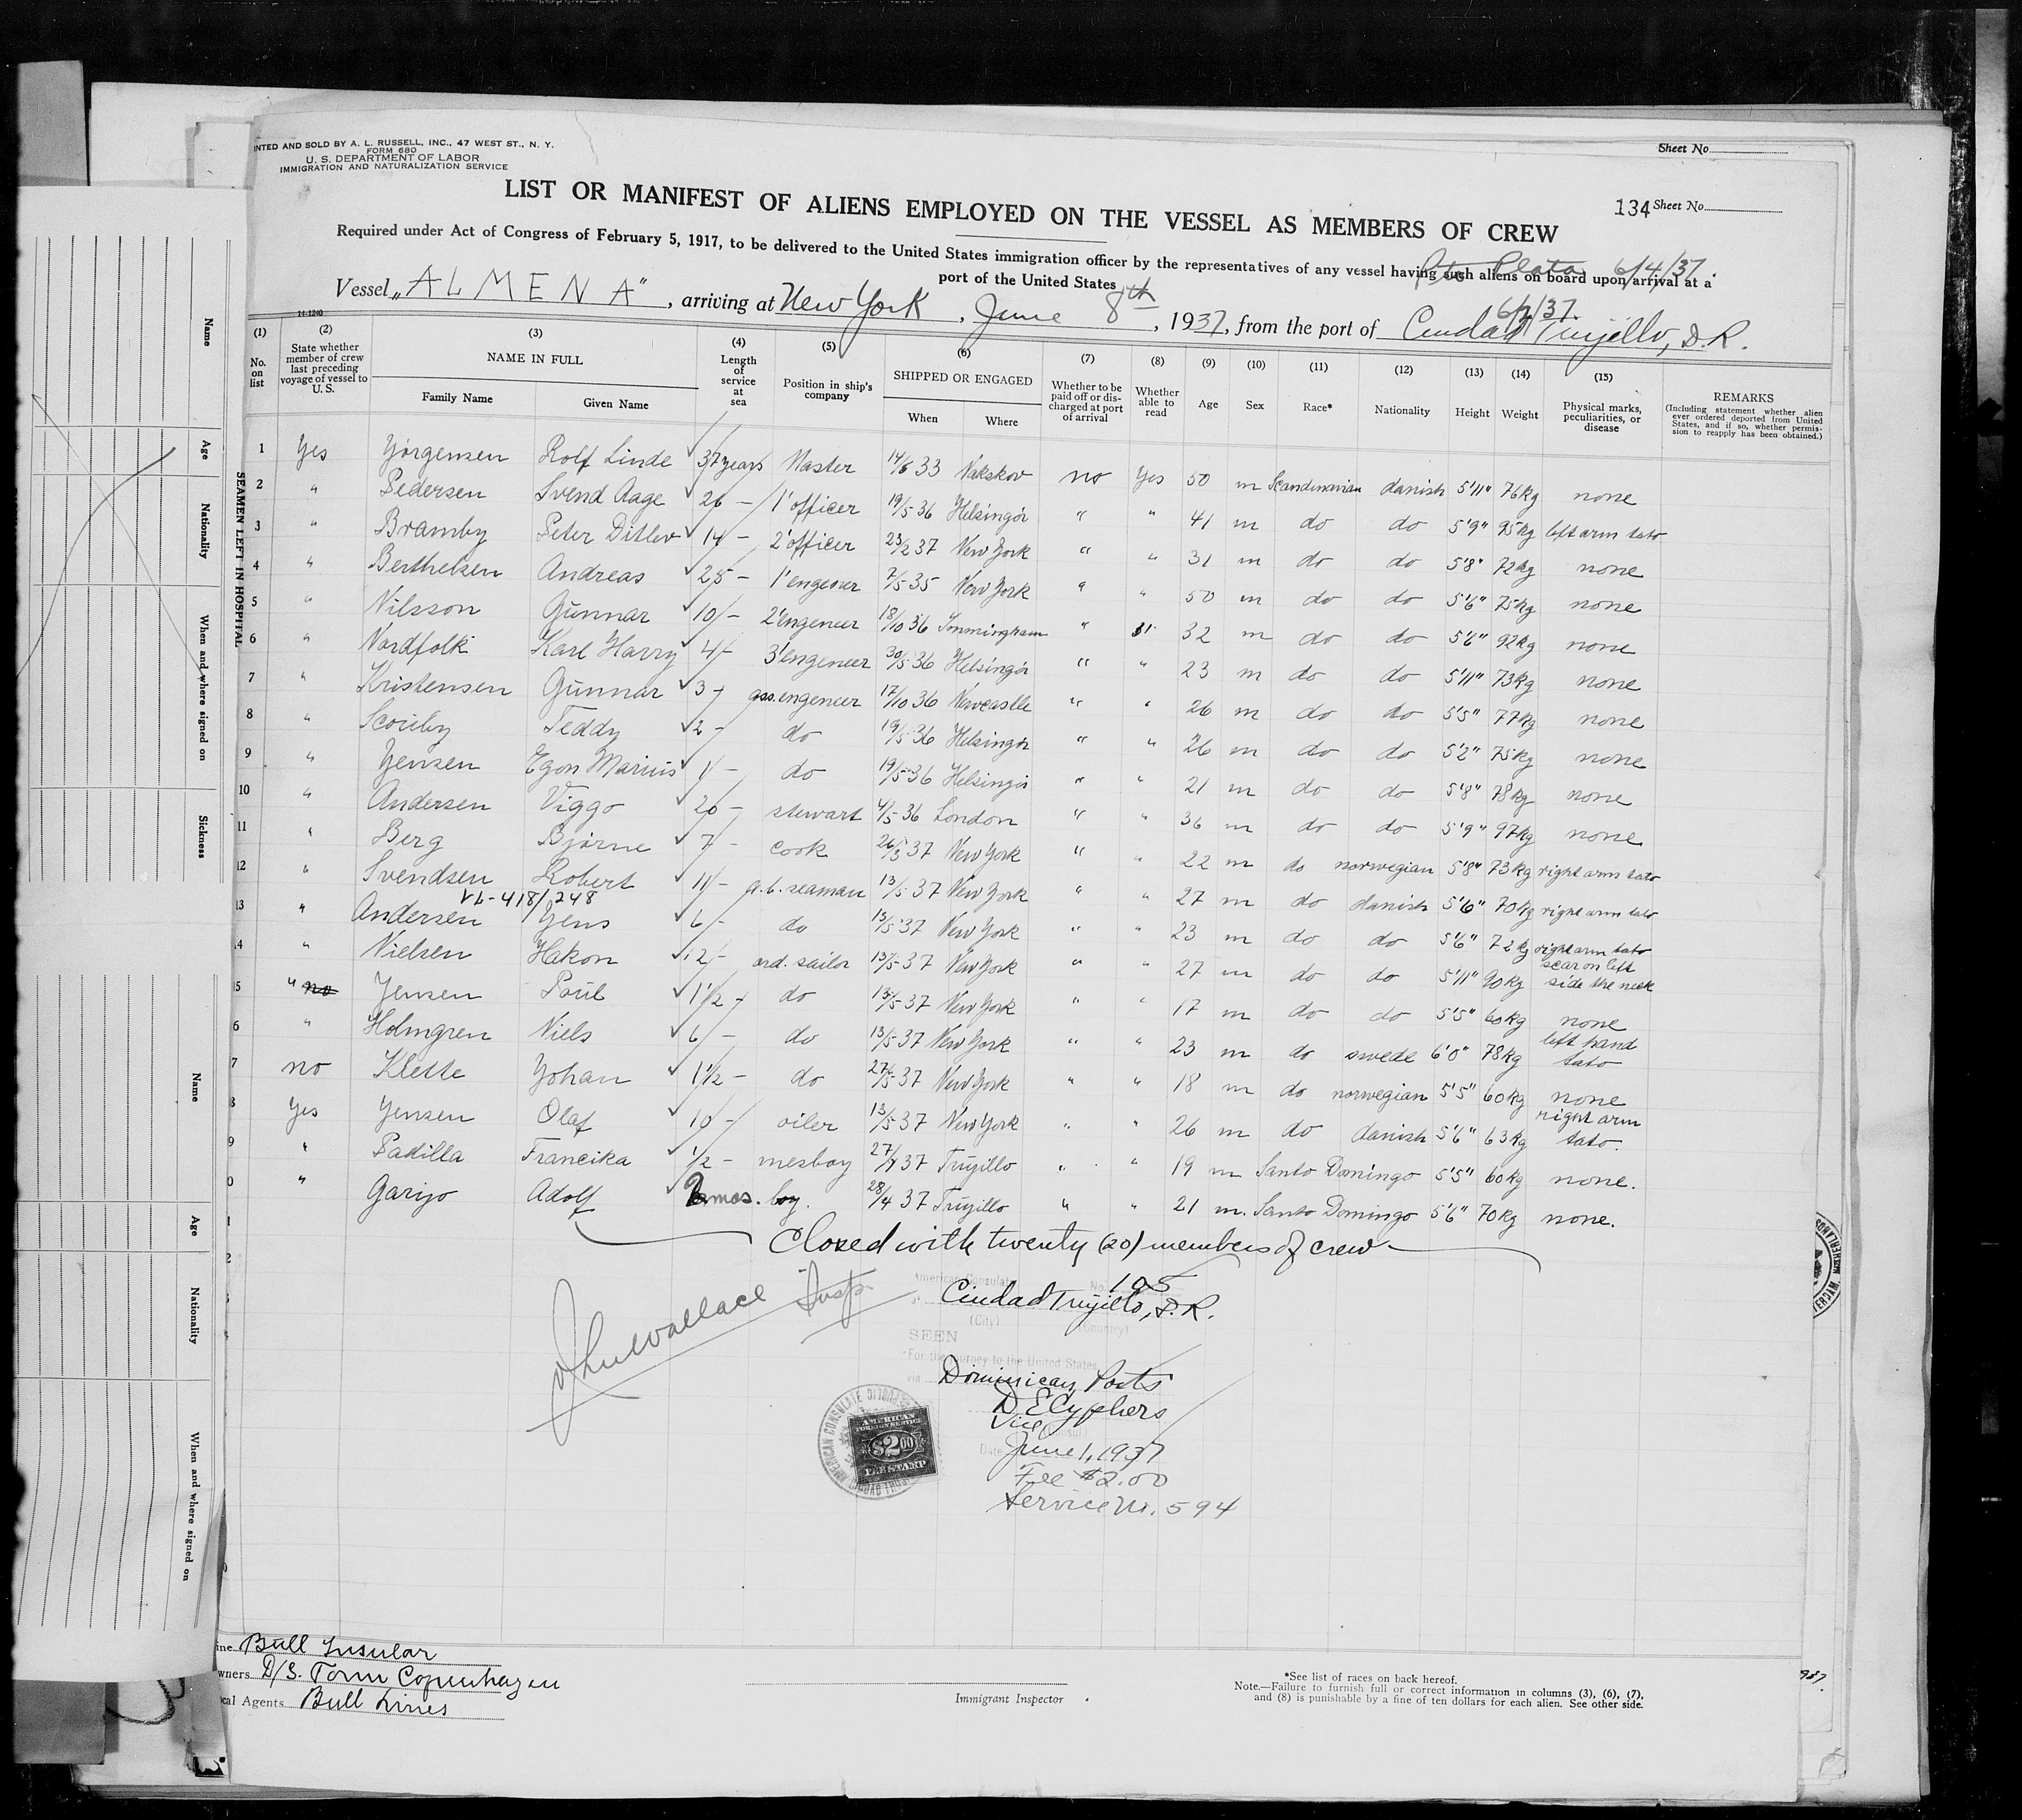 INTED AND SOLD BY A. L. RUSSELL, INC., 47 WEST ST., N. Y.
FORM 680
U. S. DEPARTMENT OF LABOR
IMMIGRATION AND NATURALIZATION SERVICE
Sheet No.
134 Sheet No.
LIST OR MANIFEST OF ALIENS EMPLOYED ON THE VESSEL AS MEMBERS OF CREW
Required under Act of Congress of February 5, 1917, to be delivered to the United States immigration officer by the representatives of any vessel having such aliens on board upon arrival at a
port of the United States
Pto Plata 6/4/37.
6/2/37.
Vessel „ALMENA", arriving at New York, June 8th, 1937, from the port of Ciudad Trujillo, D.R.
14-1240
(1) No. on list
(2) State whether member of crew last preceding voyage of vessel to U. S.
(3) NAME IN FULL Family Name Given Name
(4) Length of service at sea
(5) Position in ship's company
(6) SHIPPED OR ENGAGED When Where
(7) Whether to be paid off or discharged at port of arrival
(8) Whether able to read
(9) Age
(10) Sex
(11) Race*
(12) Nationality
(13) Height
(14) Weight
(15) Physical marks, peculiarities, or disease
REMARKS (Including statement whether alien ever ordered deported from United States, and if so, whether permission to reapply has been obtained.)
1 Yes Jørgensen Rolf Linde 37 years Master 14/6 33 Nakskov no Yes 50 m Scandinavian danish 5'11" 76kg none
2 " Pedersen Svend Aage 26 - 1' officer 19/5 36 Helsingör " " 41 m do do 5'9" 95kg left arm tato
3 " Bramby Peter Ditlev 14 - 2' officer 23/2 37 New York " " 31 m do do 5'8" 72kg none
4 " Berthelsen Andreas 25 - 1' engeneer 7/5 35 New York " " 50 m do do 5'6" 75kg none
5 " Nilsson Gunnar 10 - 2' engeneer 18/10 36 Immingham " " 32 m do do 5'6" 92kg none
6 " Nordfolk Karl Harry 4 - 3' engeneer 30/5 36 Helsingör " " 23 m do do 5'11" 73kg none
7 " Kristensen Gunnar 3 - ass. engeneer 17/10 36 Newcastle " " 26 m do do 5'5" 77kg none
8 " Scouby Teddy 2 - do 19/5 36 Helsingör " " 26 m do do 5'2" 75kg none
9 " Jensen Egon Marius 1 - do 19/5 36 Helsingör " " 21 m do do 5'8" 78kg none
10 " Andersen Viggo 20 - stewart 4/5 36 London " " 36 m do do 5'9" 97kg none
11 " Berg Bjarne 7 - cook 26/3 37 New York " " 22 m do norwegian 5'8" 73kg right arm tato
12 " Svendsen Robert 11 - a.b. seaman 13/5 37 New York " " 27 m do danish 5'6" 70kg right arm tato
VL-418/248
13 " Andersen Jens 6 - do 13/5 37 New York " " 23 m do do 5'6" 72kg right arm tato
4 " Nielsen Hakon 12 - ord. sailor 13/5 37 New York " " 27 m do do 5'11" 90kg scar on left side the neck
5 " no Jensen Poul 1½ - do 13/5 37 New York " " 17 m do do 5'5" 60kg none
6 " Holmgren Niels 6 - do 13/5 37 New York " " 23 m do swede 6'0" 78kg left hand tato
7 no Klette Johan 1½ - do 27/5 37 New York " " 18 m do norwegian 5'5" 60kg none
8 Yes Jensen Olaf 10 - oiler 13/5 37 New York " " 26 m do danish 5'6" 63kg right arm tato.
9 " Padilla Francika ½ - mesboy 27/4 37 Trujillo " " 19 m Santo Domingo 5'5" 60kg none.
0 " Garijo Adolf 2 mos. boy. 28/4 37 Trujillo " " 21 m. Santo Domingo 5'6" 70kg none.
1
2
Closed with twenty (20) members of crew
Wallace Insp.
American Consulate No. 105
Ciudad Trujillo, D.R.
(City) (Country)
SEEN
For the journey to the United States
via Dominican Ports
D E Cyphers
Vice (Consul)
Date June 1, 1937
Fee $2.00
Service No. 594
AMERICAN CONSULATE
AMERICAN FOREIGN SERVICE
$2.00
FEE STAMP
ine Bull Insular
wners D/S. Torm Copenhagen
cal Agents Bull Lines
Immigrant Inspector
*See list of races on back hereof.
Note.—Failure to furnish full or correct information in columns (3), (6), (7),
and (8) is punishable by a fine of ten dollars for each alien. See other side.
SEAMEN LEFT IN HOSPITAL
Name
Age
Nationality
When and where signed on
Sickness
Name
Age
Nationality
When and where signed on